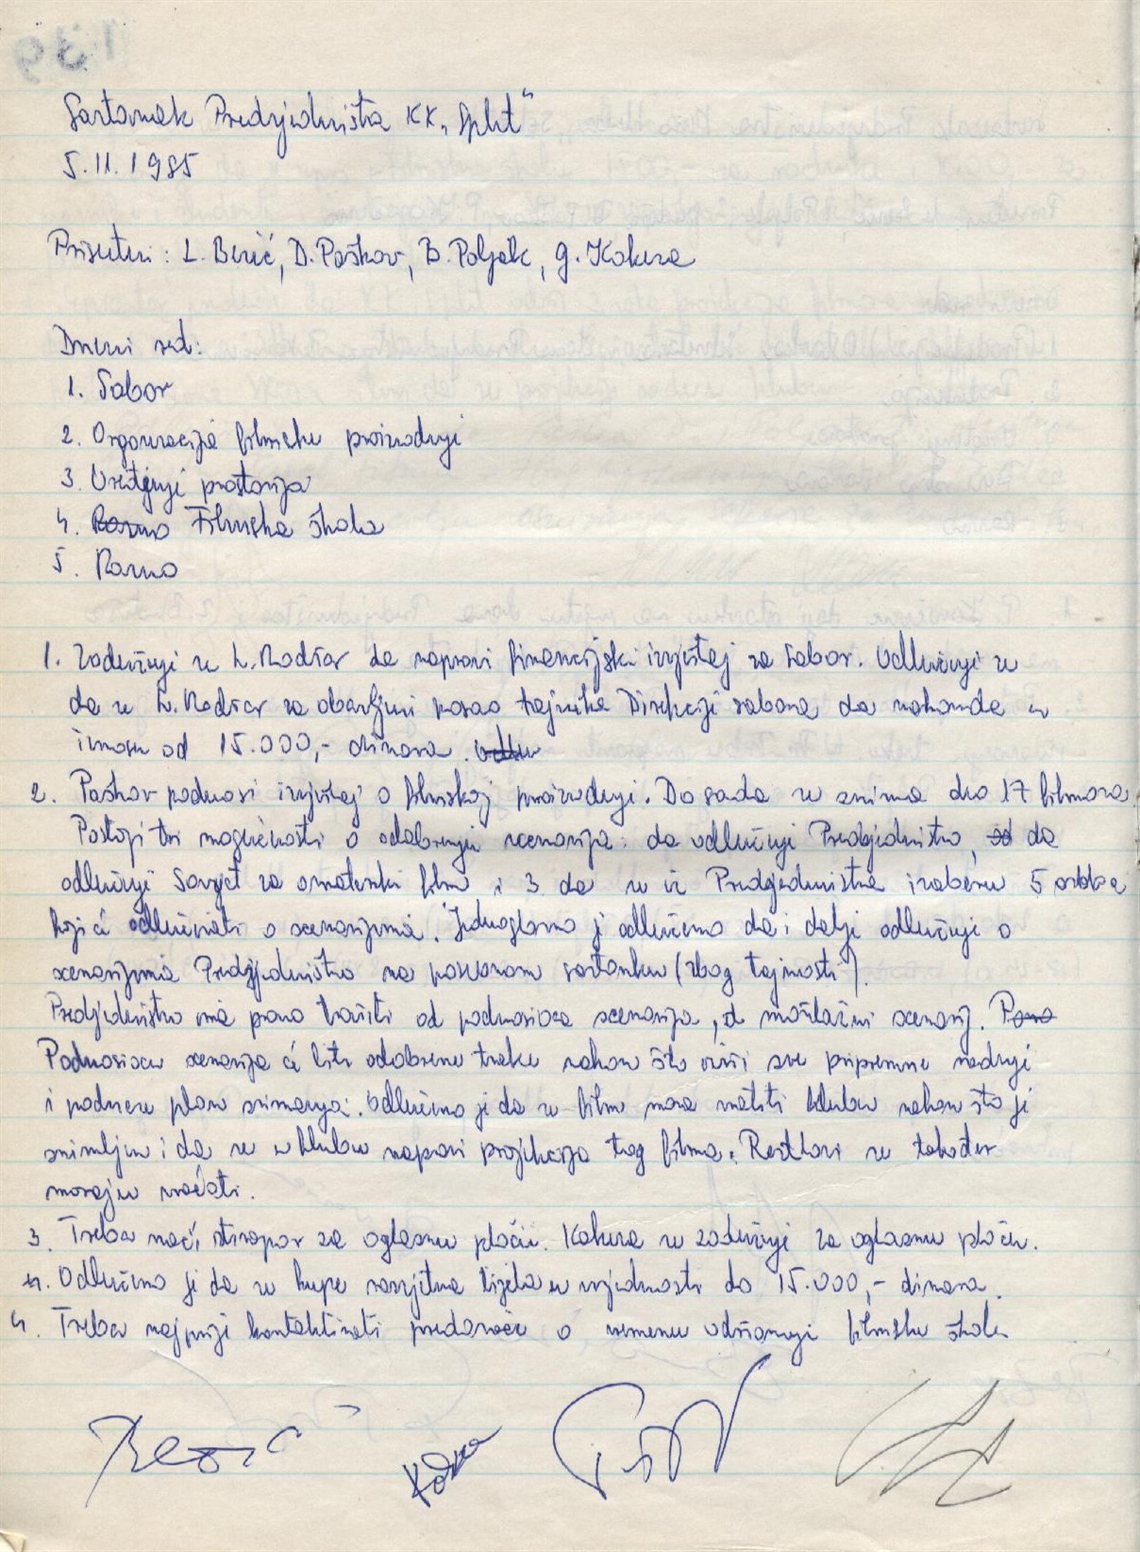 Sastanak Predsjedništva KK "Split"
5.11.1985
Prisutni: L. Bezić, D. Poškov, B. Poljak, G. Kokeza
Dnevni red:
1. Sabor
2. Organizacija filmske proizvodnje
3. Uređenje prostorija
4. Razno Filmska škola
5. Razno
1. Zadužuje se L. da napravi financijski izvještaj za Sabor. Odlučuje se
da se L. za obavljeni posao tajnika Direkcije sabora da naknada u
iznosu od 15.000,- dinara.
2. Poškov podnosi izvještaj o filmskoj proizvodnji. Do sada se snima oko 17 filmova.
Postoje tri mogućnosti o odobrenju scenarija: da odlučuje Predsjedništvo, da
odlučuje Savjet za amaterski film i 3 da se iz Predsjedništva izabere 5 osoba
koje će odlučivati o scenarijima. Jednoglasno je odlučeno da i dalje odlučuje o
scenarijima Predsjedništvo na posebnom sastanku (zbog tajnosti).
Predsjedništvo ima pravo tražiti od podnosioca scenarija scenarij.
Podnosiocu scenarija će biti odobrena traka nakon što izvrši sve pripremne radnje
i podnese plan snimanja. Odlučeno je da se film mora vratiti klubu nakon što je
snimljen i da se u klubu napravi projekcija tog filma. Restlovi se također
moraju vraćati.
3. Treba naći stiropor za oglasnu ploču. Kokeza se zadužuje za oglasnu ploču.
Odlučeno je da se kupe rasvjetna tijela u vrijednosti do 15.000,- dinara.
4. Treba najprije kontaktirati predavače o vremenu održavanja filmske škole
Bezić
Kokeza